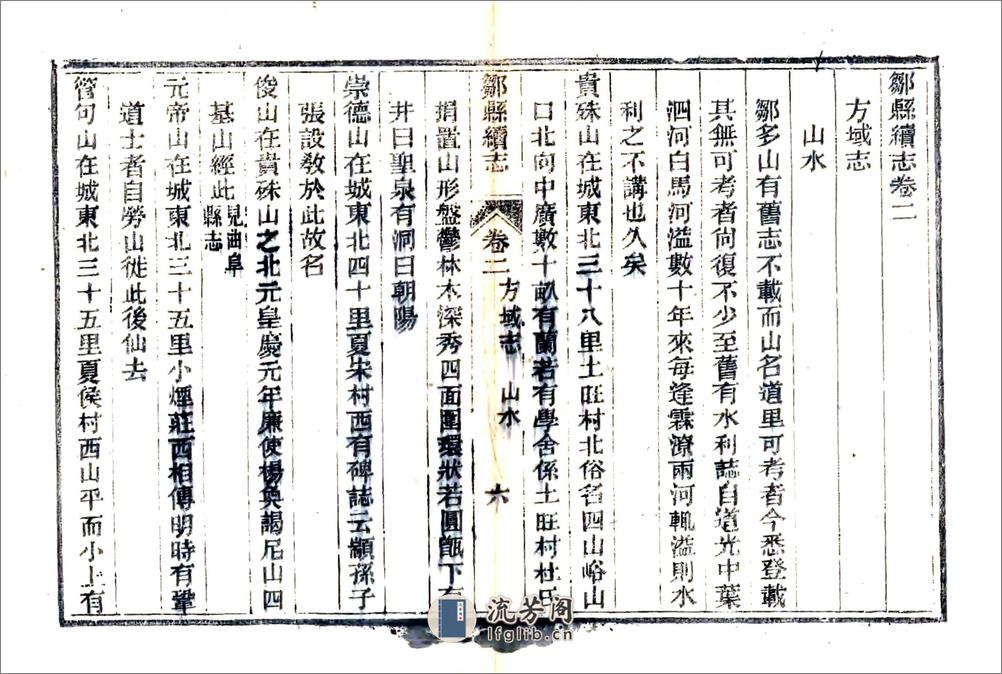 鄒縣續志卷二
方域志
山水
鄒多山有舊志不載而山名道里可考者今悉登載
其無可考者尙復不少至舊有水利誌自道光中葉
泗河白馬河溢數十年來每逢霖潦兩河輒溢則水
利之不講也久矣
貴殊山在城東北三十八里土旺村北俗名四山峪山
口北向中廣數十畝有蘭若有學舍係土旺村杜氏
鄒縣續志 卷二 方域志 山水 六
捐置山形盤鬱林木深秀四面圍環狀若圓甑下有
井曰聖泉有洞曰朝陽
崇德山在城東北四十里夏宋村西有碑誌云顓孫子
張設敎於此故名
俊山在貴殊山之北元皇慶元年廉使楊奐謁尼山四
基山經此見曲阜縣志
元帝山在城東北三十五里小煙莊西相傳明時有鞏
道士者自勞山徙此後仙去
管句山在城東北三十五里夏侯村西山平而小上有
流芳阁
lfglib.cn